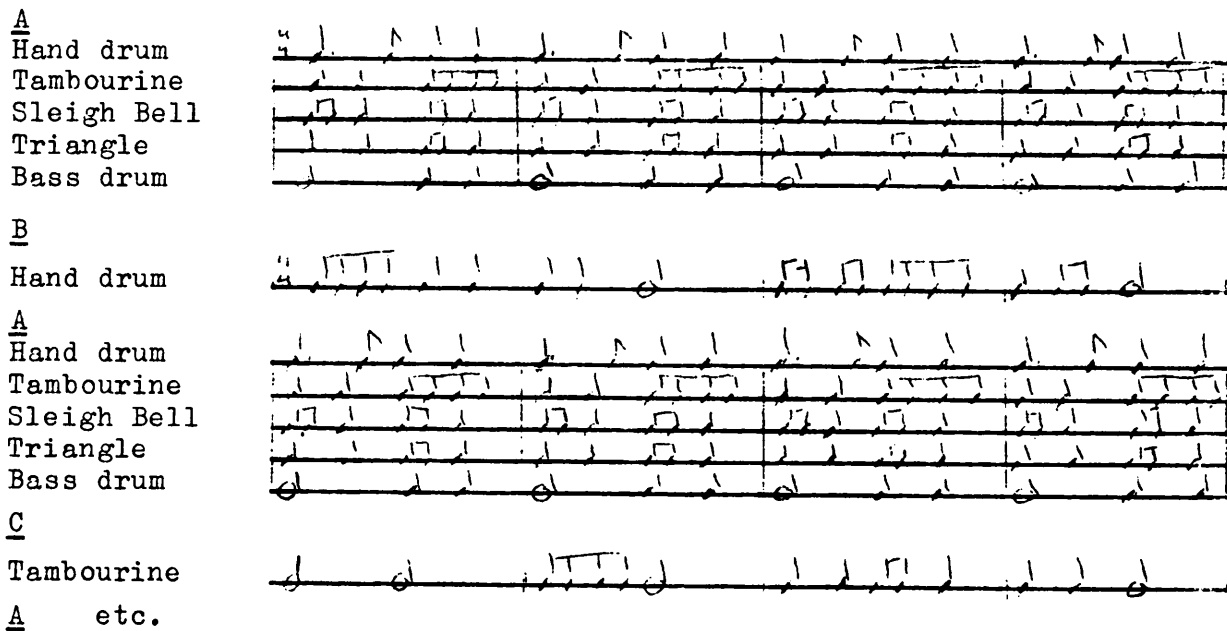 A
Hand drum 4/4
Tambourine
Sleigh Bell
Triangle
Bass drum
B
Hand drum 4/4
A
Hand drum
Tambourine
Sleigh Bell
Triangle
Bass drum
C
Tambourine
A etc.